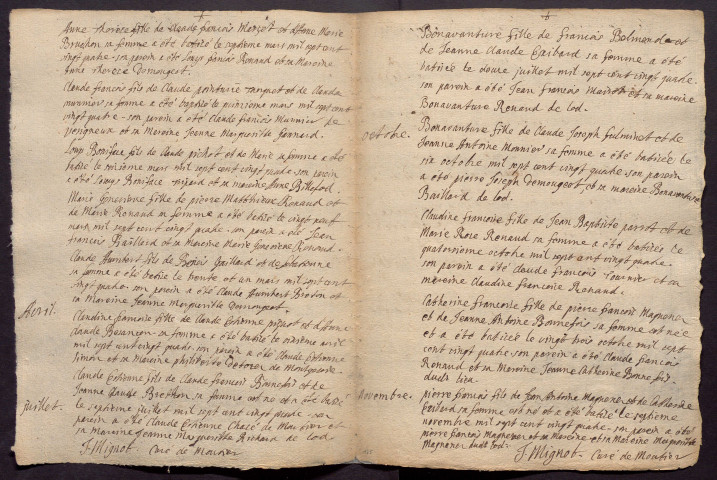 Anne therese fille de Claude francois Marzet et d'Anne Marie
Bruchon sa femme a été batisé le septieme mars mil sept cent
vingt quatre son parein a été Louys francois Renaud et sa Mareine
Anne therese Demougeot.
Claude francois fils de Claude pointurier et de Claude
sa femme a été baptisé le quinzieme mars mil sept cent
vingt quatre son parein a été Claude francois Munnier de
et sa Mareine Jeanne Marguerite
Loup Boniface fils de Claude pichot et de Marie sa femme a été
batisé le mars mil sept cent vingt quatre son parein
a été Louys Boniface et sa mareine Anne
Marie Genevieve fille de pierre Matthieu Renaud et
de Marie Renaud sa femme a été batisé le vingt neuf
mars mil sept cent vingt quatre son parein a été Jean
francois Baillard et sa Mareine Marie Genevieve Renaud.
Claude humbert fils de Benois Gaillard et de
sa femme a été batisé le trente et un mars mil sept cent
vingt quatre son parein a été Claude humbert Breton et
sa Mareine Jeanne Marguerite Demougeot
Avril.
Claudine francoise fille de Claude Etienne pichot et d'Anne
Claude Besançon sa femme a été batisé le avril
mil sept cent vingt quatre son parein a été Claude Etienne
Simon et sa Mareine philiberte de
Claude Etienne fils de Claude francois Bonnefoi et de
Jeanne Claude Brethon sa femme est né et a été batisé
Juillet.
le septieme juillet mil sept cent vingt quatre son
parein a été Claude Etienne de Moutier et
sa Mareine Jeanne Marguerite Richard de Lod
J Mignot Curé de Moutier
Bonavanture fille de francois Belmande et
de Jeanne Claude Gaibard sa femme a été
batisée le douze juillet mil sept cent vingt quatre
son parein a été Jean francois Mairot et sa mareine
Bonavanture Renaud de Lod.
octobre.
Bonavanture fille de Claude Joseph et de
Jeanne Antoine Monnier sa femme a été batisée le
six octobre mil sept cent vingt quatre son parein
a été pierre Joseph Demougeot et sa mareine Bonavanture
Baillard de Lod.
Claudine francoise fille de Jean Baptiste parrot et de
Marie Rose Renaud sa femme a été batisée le
quatorzieme octobre mil sept cent vingt quatre
son parein a été Claude francois Tournier et sa
mareine Claudine francoise Renaud.
Catherine francoise fille de pierre francois Magnenet
et de Jeanne Antoine Bonnefois sa femme est née
et a été batisée le vingt trois octobre mil sept
cent vingt quatre son parein a été Claude francois
Renaud et sa Mareine Jeanne Catherine Bonnefoi
dudit lieu
Novembre.
pierre francois fils de Jean Antoine Magnenet et de Catherine
sa femme est né et a été batisé le septieme
novembre mil sept cent vingt quatre, son parein a été
pierre francois Magnenet et sa Mareine Marguerite
Magnenet dudit Lod
J Mignot Curé de Moutier